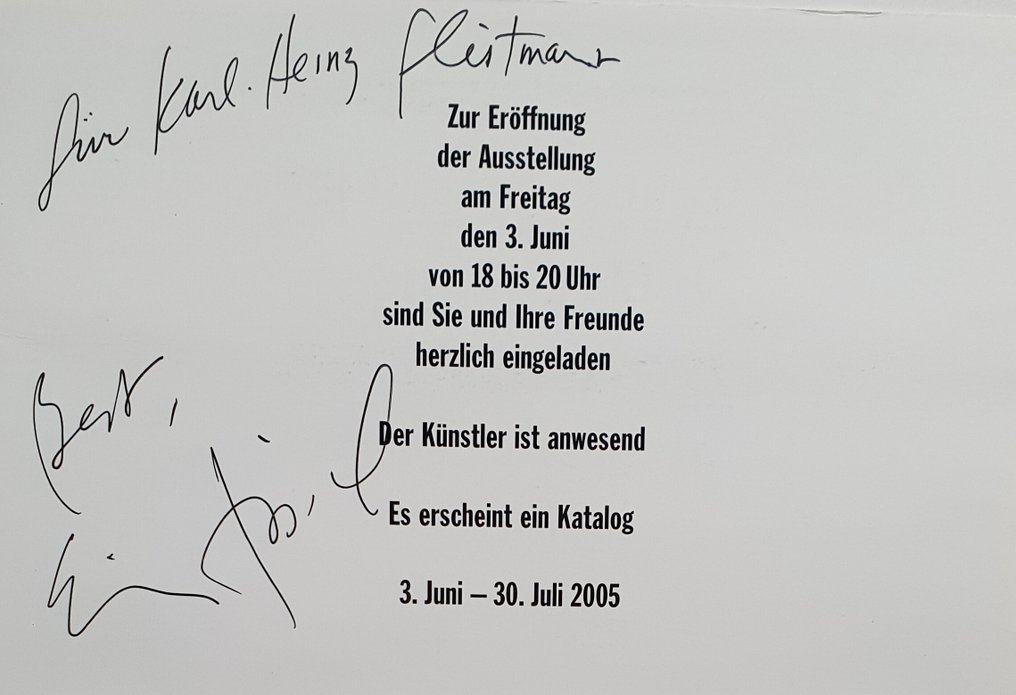 für Karl-Heinz Fleitmann
Zur Eröffnung
der Ausstellung
am Freitag
den 3. Juni
von 18 bis 20 Uhr
sind Sie und Ihre Freunde
herzlich eingeladen
Best,
Der Künstler ist anwesend
Es erscheint ein Katalog
3. Juni – 30. Juli 2005